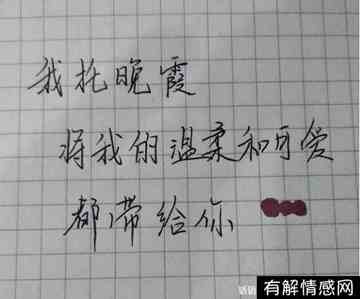 我托晚霞
将我的温柔和可爱
都带给你
有解情感网